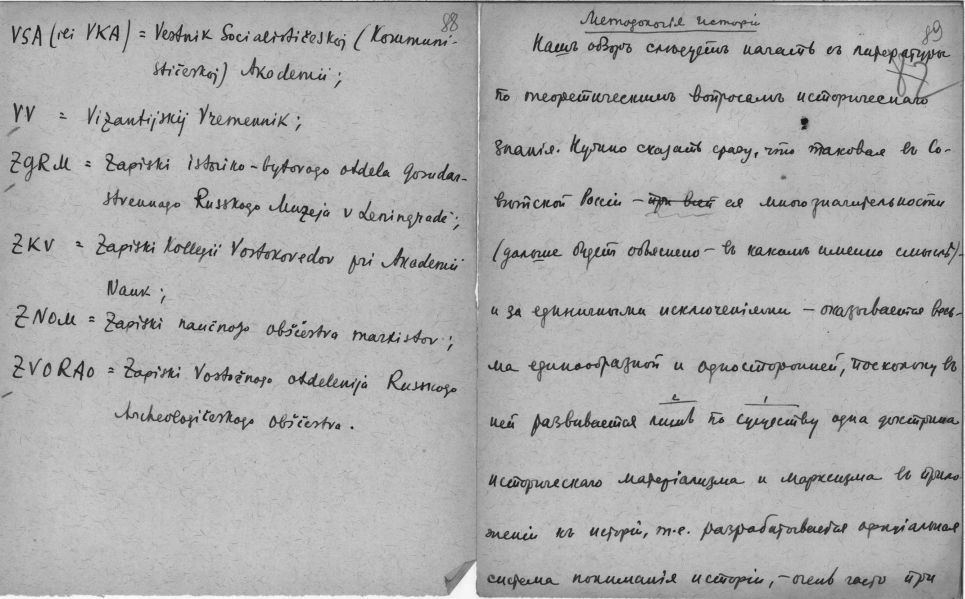 88
VSA (rei VKA) = Vestnik Socialističeskoj (Kommuni-
stičeskoj) Akademii;
VV = Vizantijskij Vremennik;
ZgRM = Zapiski istoriko-bytovogo otdela gosudar-
stvennago Russkogo Muzeja v Leningradě;
ZKV = Zapiski Kollegii Vostokovedov pri Akademii
Nauk;
ZNOM = Zapiski naučnogo obščestva markistov;
ZVORAO = Zapiski Vostočnogo otdelenija Russkogo
Archeologičeskogo obščestva.
89
Методологія исторіи
87
Нашъ обзоръ слѣдуетъ начать съ литературы
по теоретическимъ вопросамъ историческаго
знанія. Нужно сказать сразу, что таковая въ Со-
вѣтской Россіи – при всей ея многозначительности
(дальше будетъ объяснено – въ какомъ именно смыслѣ) –
и за единичными исключеніями – оказывается весь-
ма единообразной и односторонней, поскольку въ
2 1
ней развивается лишь по существу одна доктрина
историческаго матеріализма и марксизма въ прило
женіи къ исторіи, т.е. разрабатывается офиціальная
система пониманія исторіи, – очень часто при